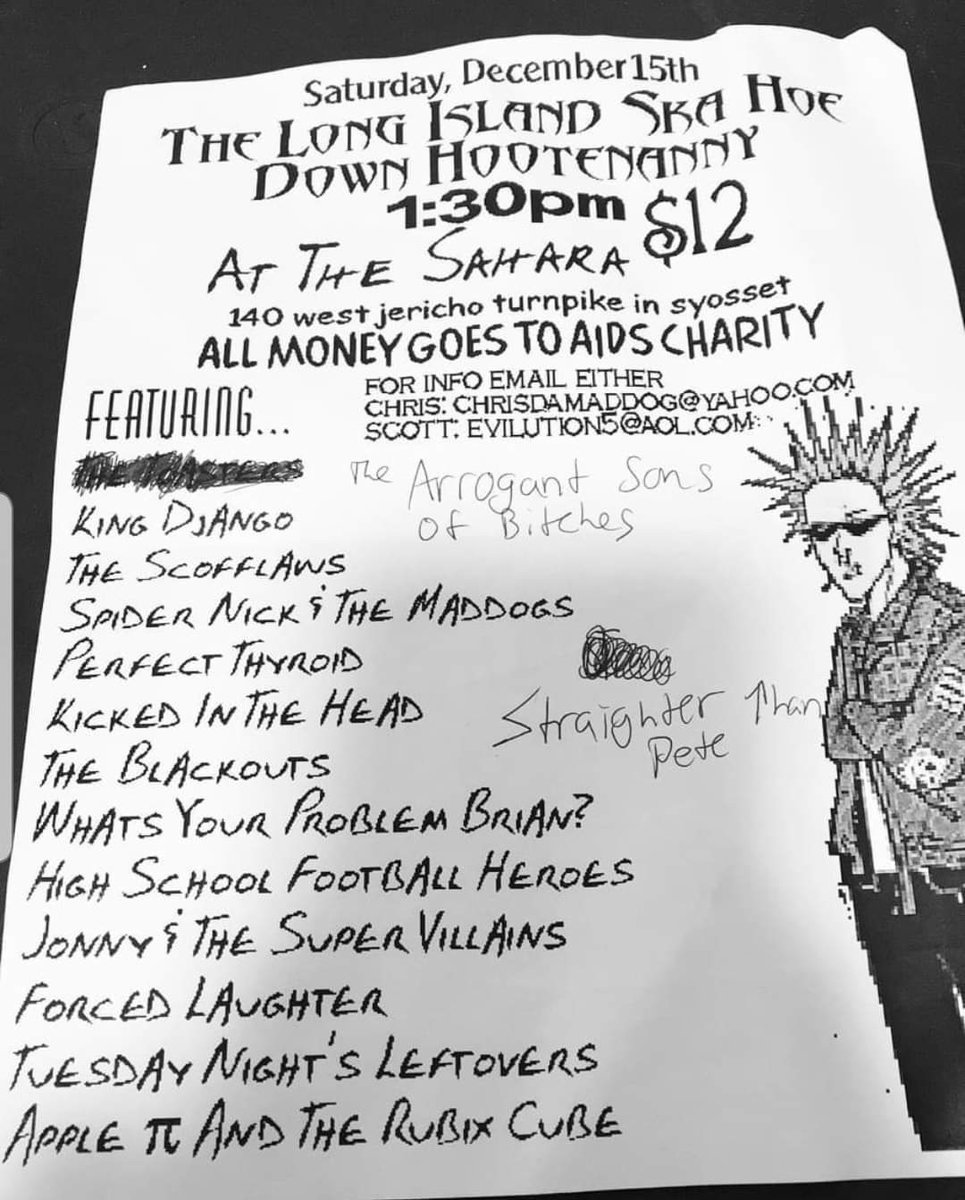 Saturday, December 15th
THE LONG ISLAND SKA HOE
DOWN HOOTENANNY
1:30pm $12
AT THE SAHARA
140 west jericho turnpike in syosset
ALL MONEY GOES TO AIDS CHARITY
FOR INFO EMAIL EITHER
CHRIS: CHRISDAMADDOG@YAHOO.COM
SCOTT: EVILUTION5@AOL.COM
FEATURING...
THE TOASTERS
The Arrogant Sons
of Bitches
KING DJANGO
THE SCOFFLAWS
SPIDER NICK & THE MADDOGS
PERFECT THYROID
KICKED IN THE HEAD
Straighter Than
Pete
THE BLACKOUTS
WHATS YOUR PROBLEM BRIAN?
HIGH SCHOOL FOOTBALL HEROES
JONNY & THE SUPER VILLAINS
FORCED LAUGHTER
TUESDAY NIGHT'S LEFTOVERS
APPLE π AND THE RUBIX CUBE